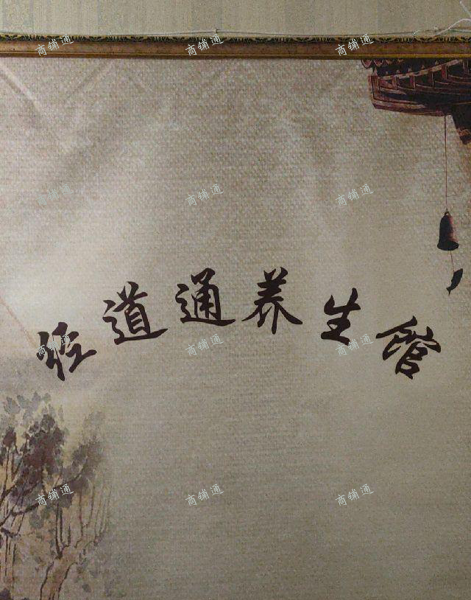 商铺通 商铺通 商铺通
商铺通 商铺通 商铺通
经道通养生馆
商铺通 商铺通 商铺通
商铺通 商铺通 商铺通